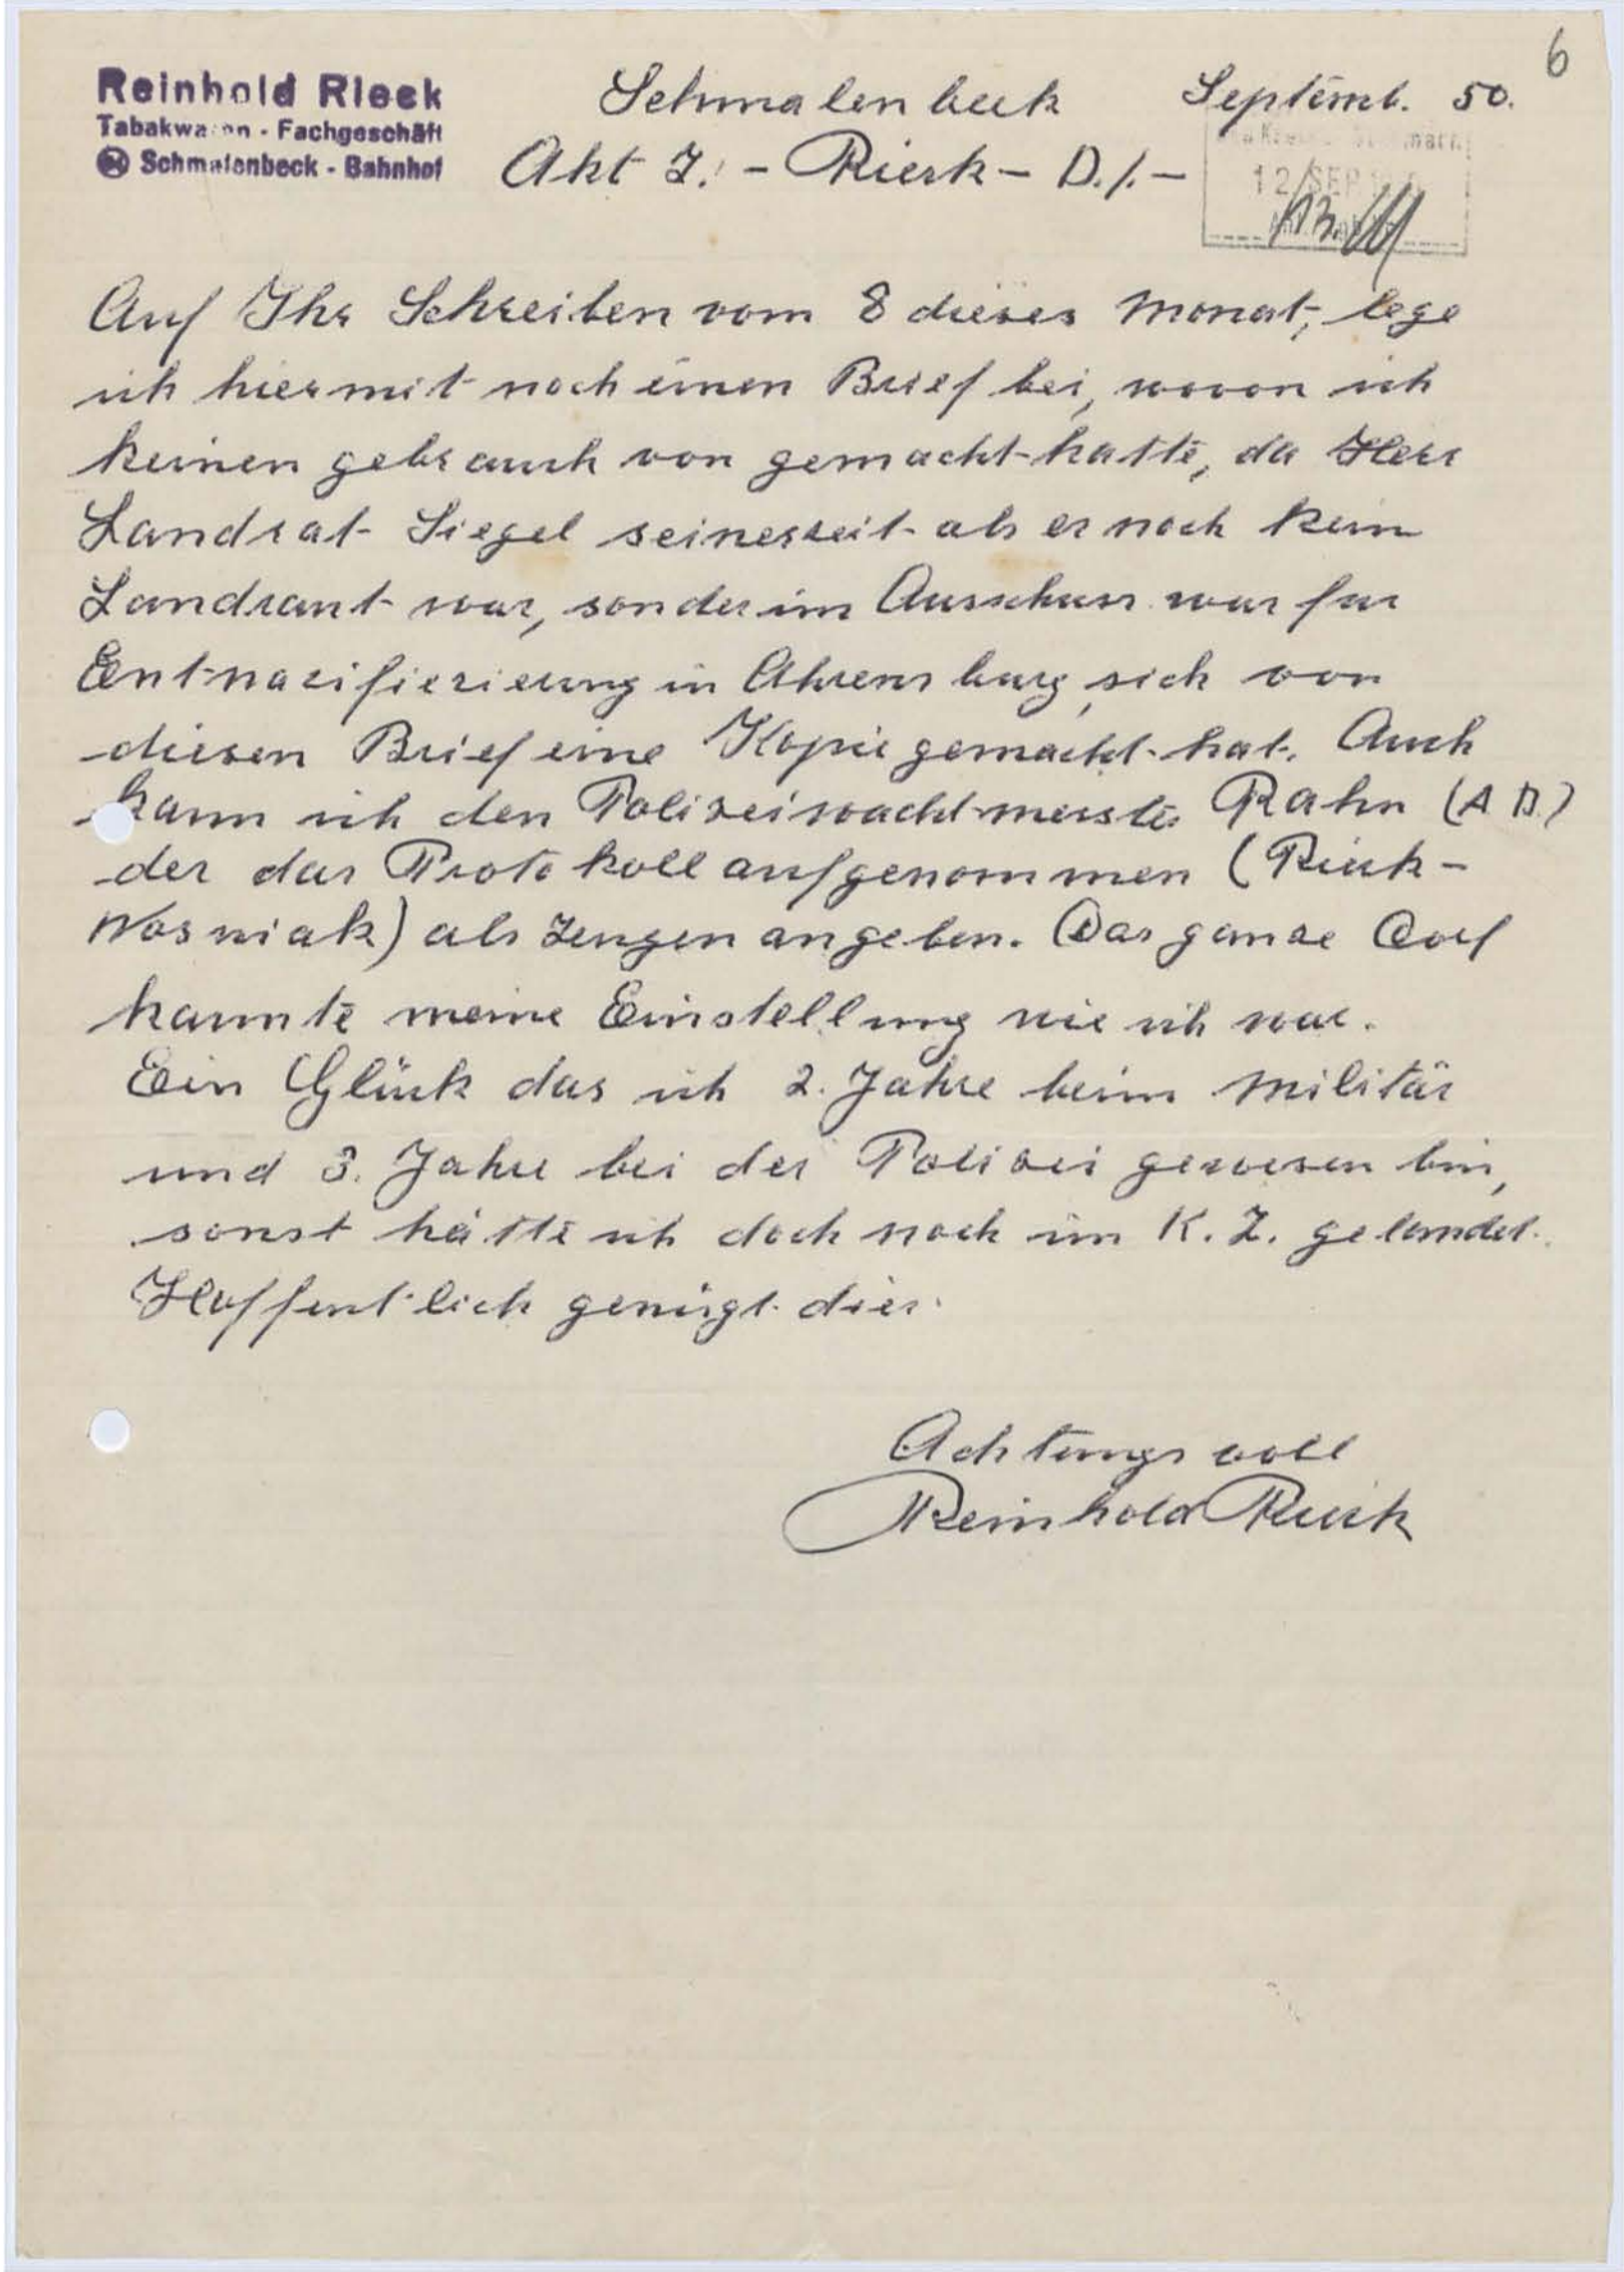 6
Reinhold Rieck
Tabakwaren - Fachgeschäft
(24) Schmalenbeck - Bahnhof
Schmalenbeck Septemb. 50.
Akt Z.: - Rieck - D./. -
12 SEP
Auf Ihr Schreiben vom 8 dieses Monat, lege
ich hiermit noch einen Brief bei, wovon ich
keinen gebrauch von gemacht hatte, da Herr
Landrat Siegel seinerzeit als er noch kein
Landraat war, sonder im Ausschuss war fur
Entnazifizierung in Ahrensburg, sich von
diesen Brief eine Kopie gemacht hat. Auch
kann ich den Polizeiwachtmeister Rahn (A D.)
der das Protokoll aufgenommen (Rieck-
Wosniak) als Zeugen angeben. Das ganze Dorf
kannte meine Einstellung wie ich war.
Ein Glück das ich 2. Jahre beim Militär
und 3. Jahre bei der Polizei gewesen bin,
sonst hätte ich doch noch im K. Z. gelandet.
Hoffentlich genügt dies.
Achtungsvoll
Reinhold Rieck